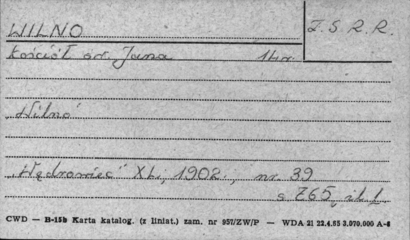 WILNO
Z.S.R.R.
Kościół św. Jana 1 kr.
„Wilno”
„Wędrowiec” XL, 1902, nr. 39
s 765, il. 1
CWD — H-15b Karta katalog. (z liniat.) zam. nr 957/ZW/P — WDA 21 22.4.55 3.070.000 A-6